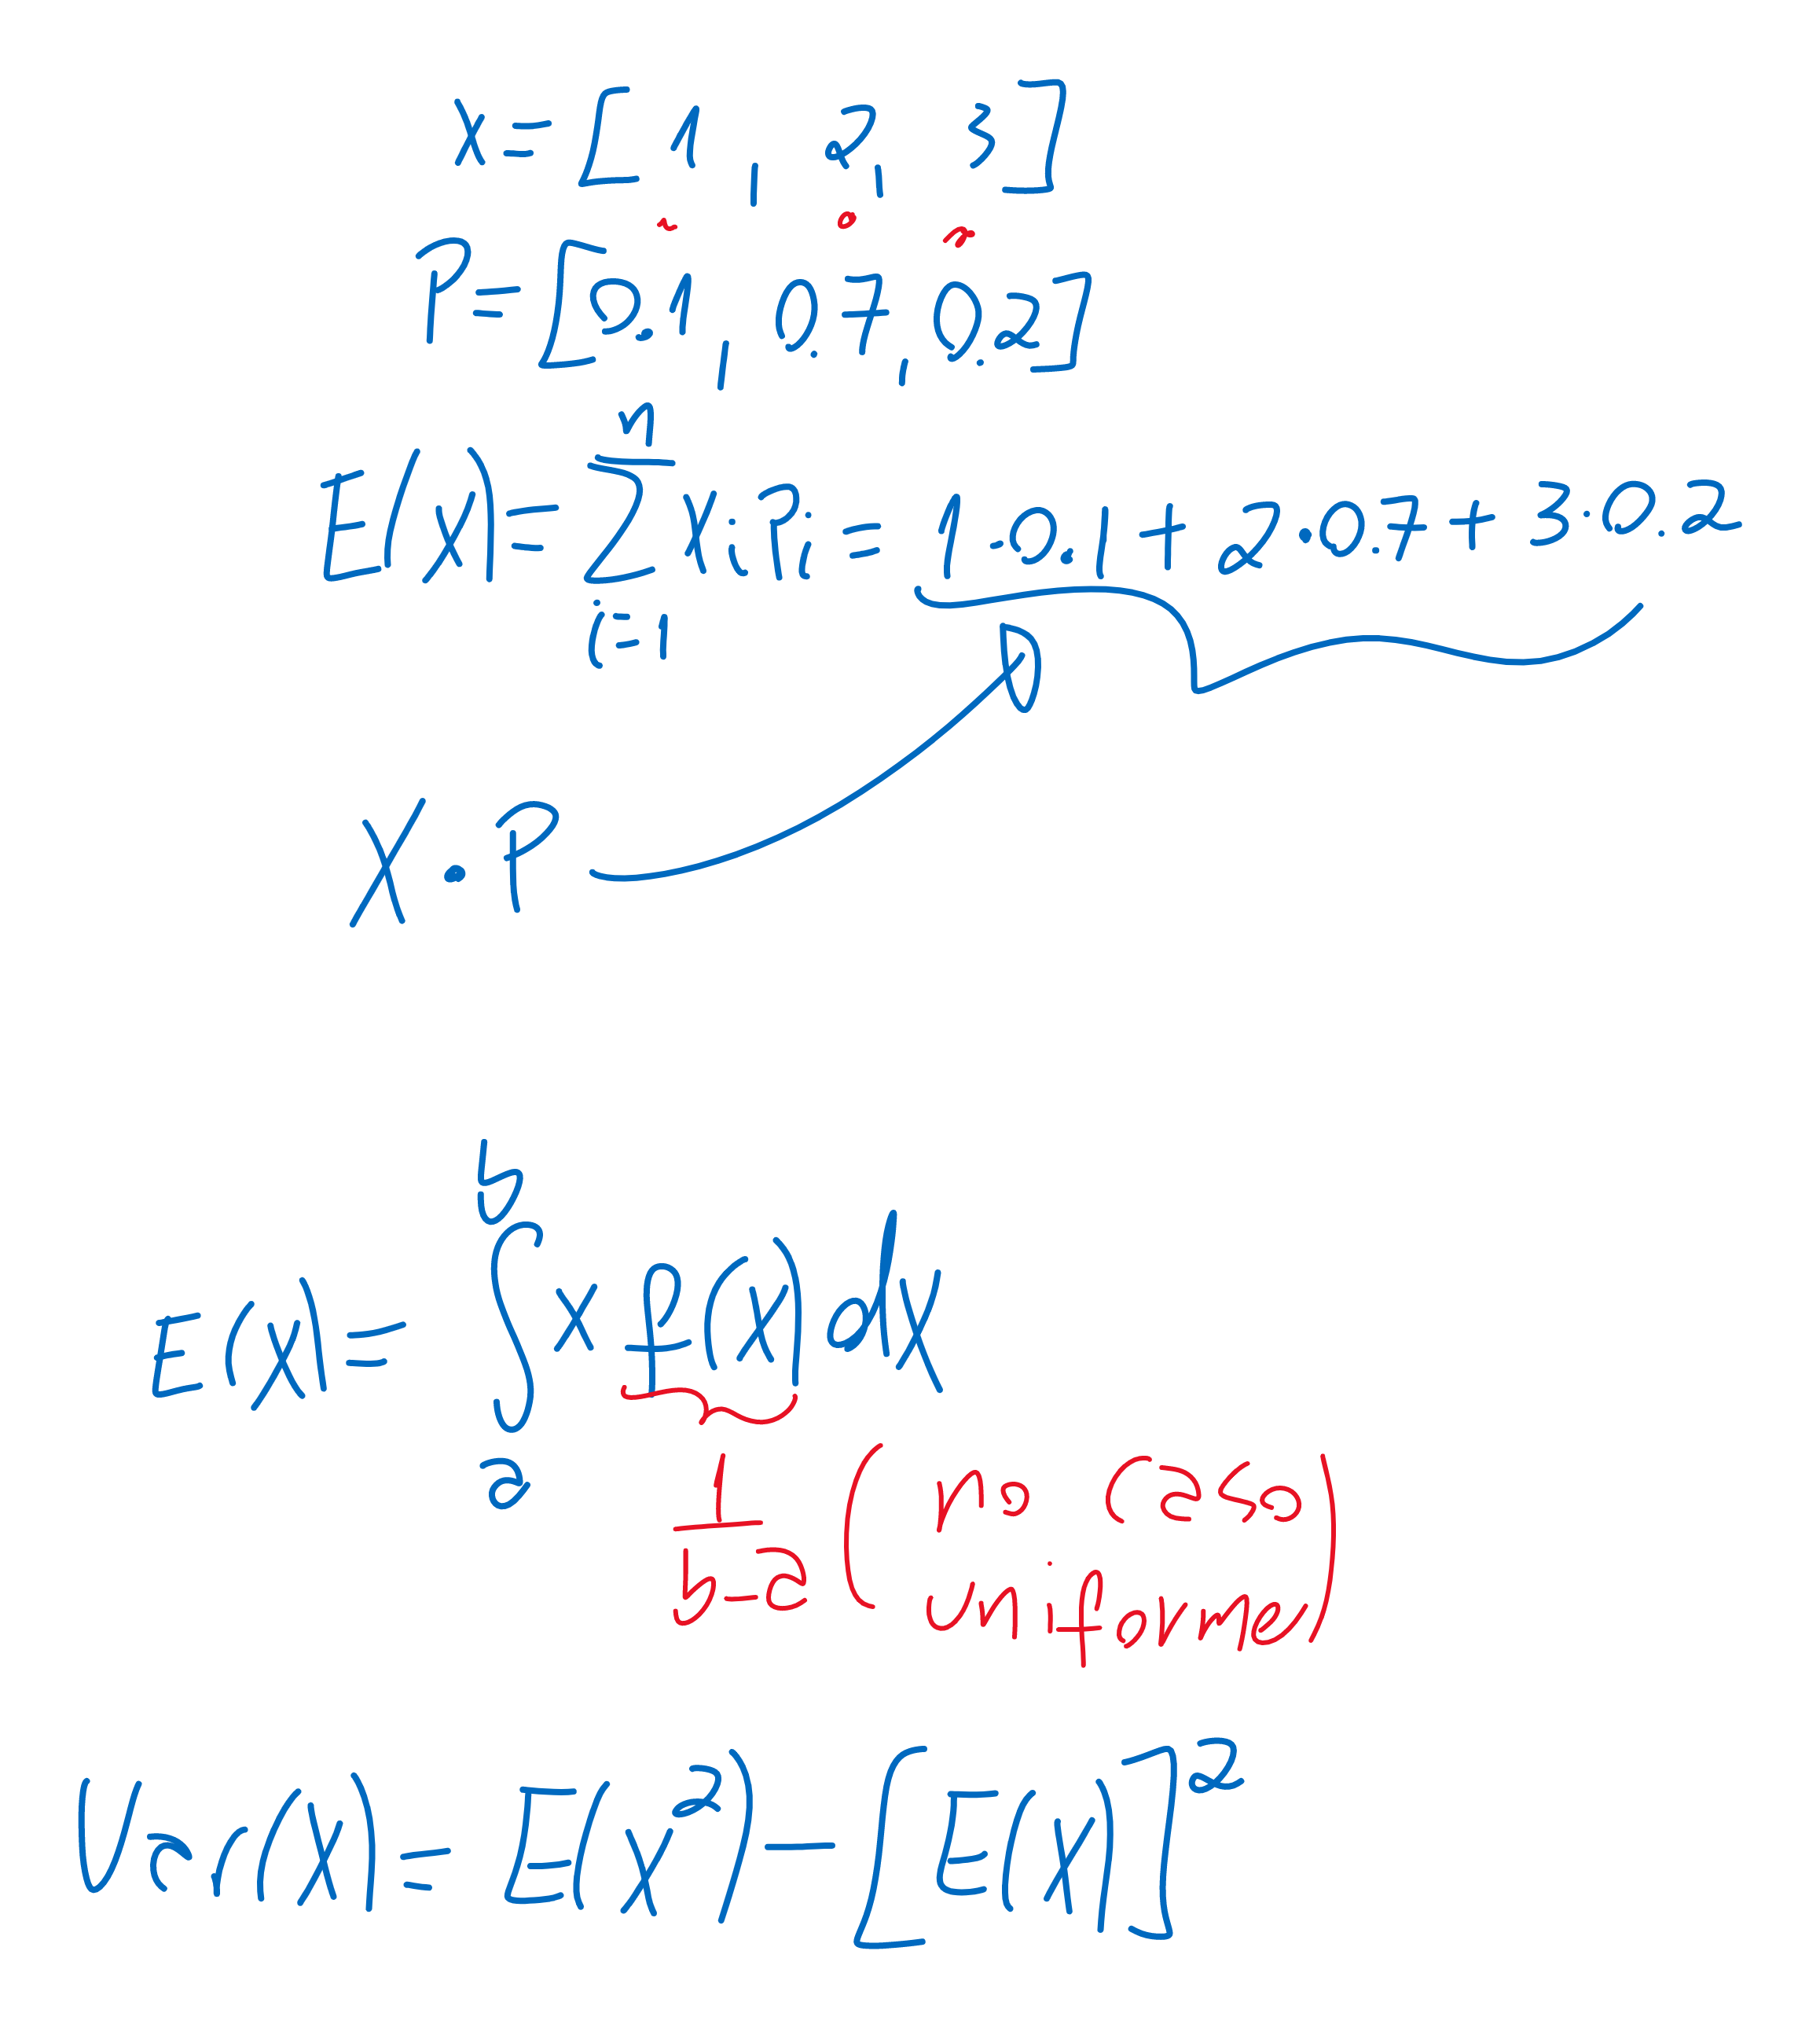 X = [1, 2, 3]
P = [0.1, 0.7, 0.2]
E(X) = ∑_{i=1}^{n} Xi Pi = 1·0.1 + 2·0.7 + 3·0.2
X · P
E(X) = ∫_a^b x f(x) dx
1/(b-a) (no caso
uniforme)
Var(X) = E(X²) - [E(X)]²